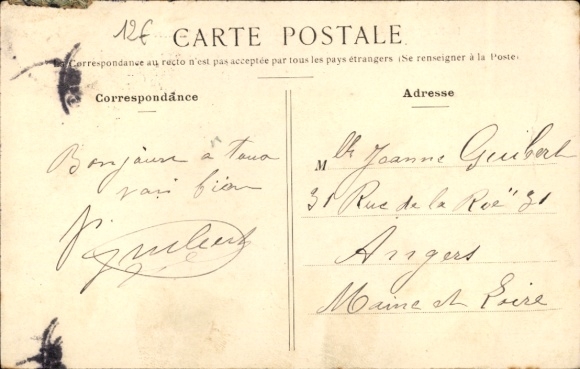 12€
CARTE POSTALE
La Correspondance au recto n'est pas acceptée par tous les pays étrangers (Se renseigner à la Poste)
Correspondance
Adresse
Bonjour a tous
vais bien
Guibert
Mlle Jeanne Guibert
31 Rue de la Roë 31
Angers
Maine et Loire